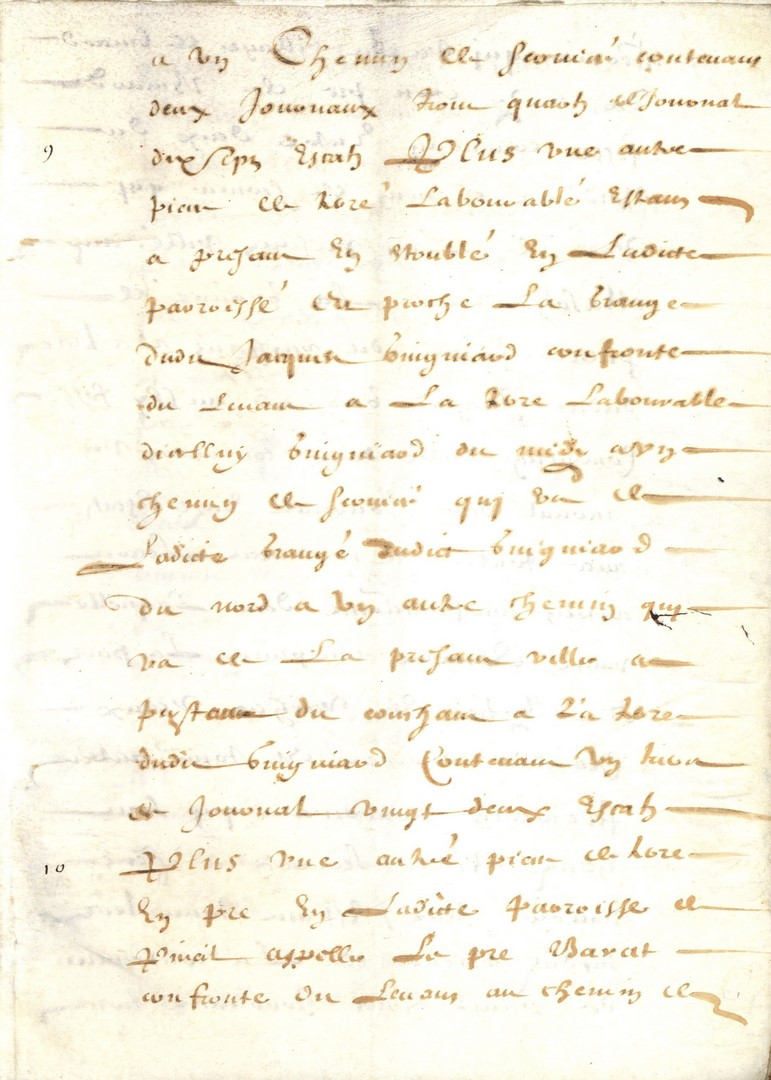 a vn Chemin de servise contenans
deux Jouonaux trois quartz de Jouonal
9 dix sept Escatz Plus vne autre
piece de terre Labourable Estans
a presans En Estoublé En Ladicte
parroisse Et proche La grange
dudit Jacques guigniard confronte
du Leuans a La terre Labourable
dicelluy guigniard du midy a vn
chemin de servise qui va de
Ladicte grange dudict guigniard
du nord a vn autre chemin qui
va de La presans ville a
du couchans a La terre
dudit guigniard Contenans vn tiers
de Jouonal vingt deux Escatz
10 Plus vne autre piece de terre
En pre En Ladicte parroisse de
appelle Le pre Barat
confronte du Leuans au chemin de